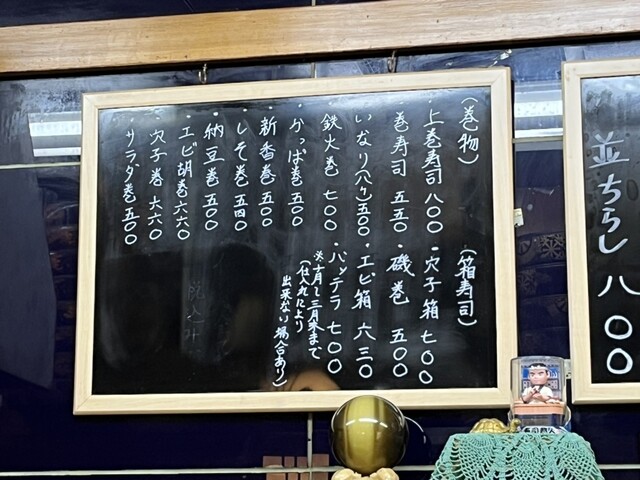 (巻物)
・上巻寿司 八〇〇
・巻寿司 五五〇
・いなり(八ケ)五〇〇
・鉄火巻 七〇〇
・かっぱ巻 五〇〇
・新香巻 五〇〇
・しそ巻 五四〇
・納豆巻 五〇〇
・エビ胡巻 六六〇
・穴子巻 六六〇
・サラダ巻 五〇〇
(箱寿司)
・穴子箱 七〇〇
・磯巻 五〇〇
・エビ箱 六三〇
・バッテラ 七〇〇
※十月〜三月末まで
(仕入れにより
出来ない場合あり)
税込み
並ちらし 八〇〇